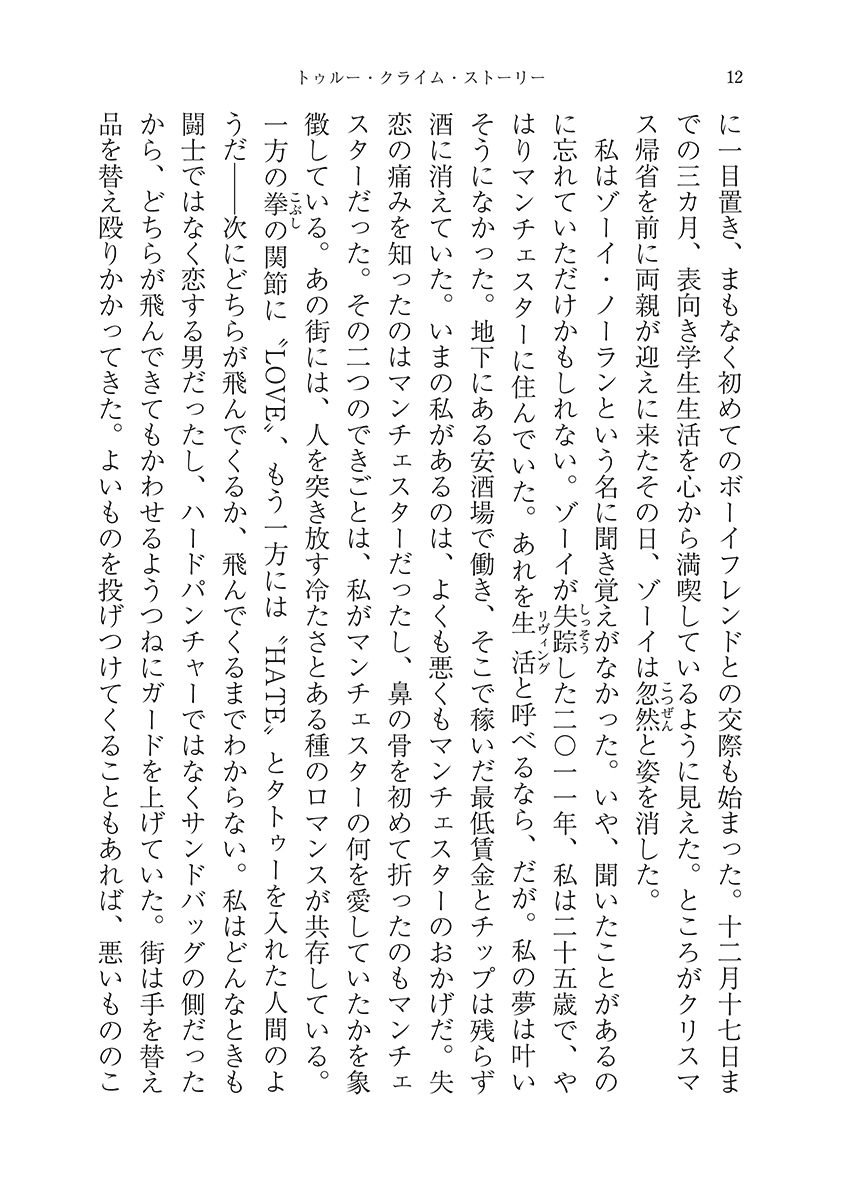 トゥルー・クライム・ストーリー
12
に一目置き、まもなく初めてのボーイフレンドとの交際も始まった。十二月十七日ま
での三カ月、表向き学生生活を心から満喫しているように見えた。ところがクリスマ
ス帰省を前に両親が迎えに来たその日、ゾーイは忽然と姿を消した。
こつぜん
私はゾーイ・ノーランという名に聞き覚えがなかった。いや、聞いたことがあるの
に忘れていただけかもしれない。ゾーイが失踪した二〇一一年、私は二十五歳で、や
しっそう
はりマンチェスターに住んでいた。あれを生活と呼べるなら、だが。私の夢は叶い
リヴィング
そうになかった。地下にある安酒場で働き、そこで稼いだ最低賃金とチップは残らず
酒に消えていた。いまの私があるのは、よくも悪くもマンチェスターのおかげだ。失
恋の痛みを知ったのはマンチェスターだったし、鼻の骨を初めて折ったのもマンチェ
スターだった。その二つのできごとは、私がマンチェスターの何を愛していたかを象
徴している。あの街には、人を突き放す冷たさとある種のロマンスが共存している。
一方の拳の関節に〝LOVE〟、もう一方には〝HATE〟とタトゥーを入れた人間のよ
こぶし
うだ――次にどちらが飛んでくるか、飛んでくるまでわからない。私はどんなときも
闘士ではなく恋する男だったし、ハードパンチャーではなくサンドバッグの側だった
から、どちらが飛んできてもかわせるようつねにガードを上げていた。街は手を替え
品を替え殴りかかってきた。よいものを投げつけてくることもあれば、悪いもののこ